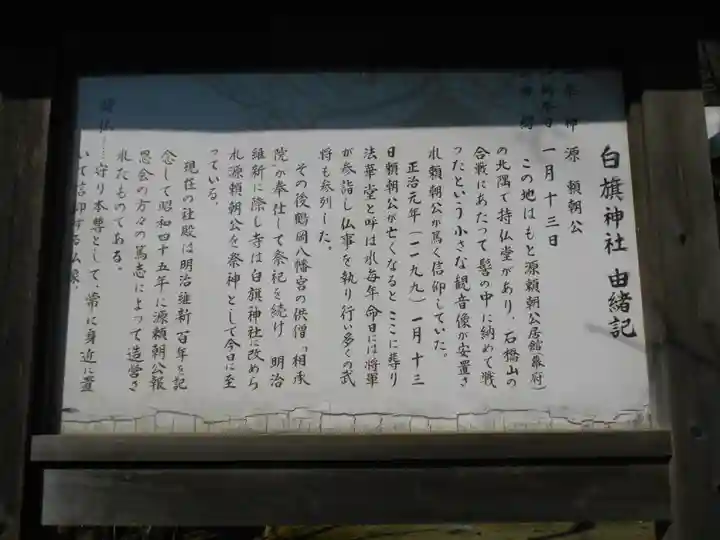 白旗神社 由緒記
源 頼朝公
一月十三日
この地はもと源頼朝公居館(幕府)
の北隅で持仏堂があり、石橋山の
合戦にあたって髻の中に納めて戦
ったという小さな観音像が安置さ
れ頼朝公が篤く信仰していた。
正治元年(一一九九)一月十三
日頼朝公が亡くなるとここに葬り
法華堂と呼ばれ毎年命日には将軍
が参詣し仏事を執り行い多くの武
将も参列した。
その後鶴岡八幡宮の供僧「相承
院」が奉仕して祭祀を続け 明治
維新に際し寺は白旗神社に改めら
れ源頼朝公を祭神として今日に至
っている。
現在の社殿は明治維新百年を記
念して昭和四十五年に源頼朝公報
恩会の方々の篤志によって造営さ
れたものである。
仏……守り本尊として、常に身近に置
いて信仰する仏像。